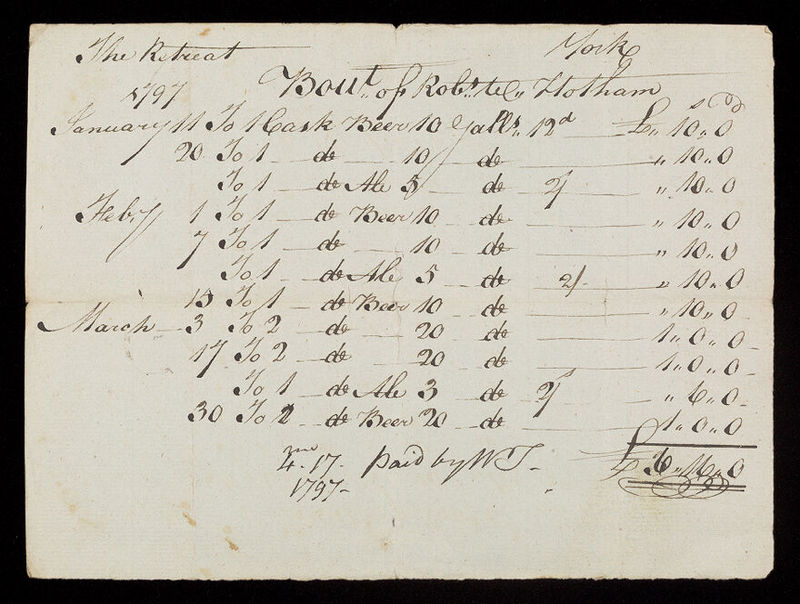 The Retreat York
1797 Bout. of Robt. Hotham
s d
January 11 To 1 Cask Beer 10 Galls. 12d £ " 10 " 0
20 To 1 do 10 do " 10 " 0
To 1 do Ale 5 do 2/ " 10 " 0
Feby 1 To 1 do Beer 10 do " 10 " 0
7 To 1 do 10 do " 10 " 0
To 1 do Ale 5 do 2/ " 10 " 0
15 To 1 do Beer 10 do " 10 " 0
March 3 To 2 do 20 do 1 " 0 " 0
17 To 2 do 20 do 1 " 0 " 0
To 1 do Ale 3 do 2/ " 6 " 0
30 To 2 do Beer 20 do 1 " 0 " 0
£ 6 " 16 " 0
4mo. 17. paid by WT
1797